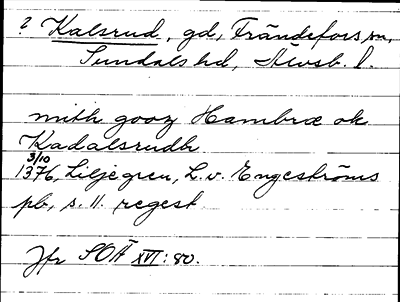 ? Kalsrud, gd, Frändefors sn,
Sundals hd, Älvsb. l.
mith gooz Hambræ ok
Kadalsrudh
3/10
1376, Liljegren, L. v. Engeströms
pb, s. 11. regest
Jfr SOÄ XVI: 80.